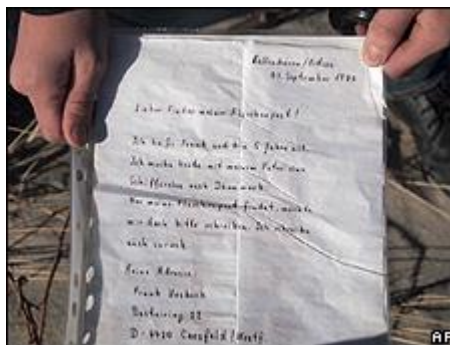 September 1987
Lieber Finder meiner Flaschenpost!
Ich heiße Frank und bin 5 Jahre alt.
Ich mache heute mit meinem Vater eine
Schiffsreise nach Dänemark.
Wer meine Flaschenpost findet, möchte
mir doch bitte schreiben. Ich schreibe
auch zurück.
Meine Adresse:
Frank
22
D-4420 Coesfeld / Westf.
AP